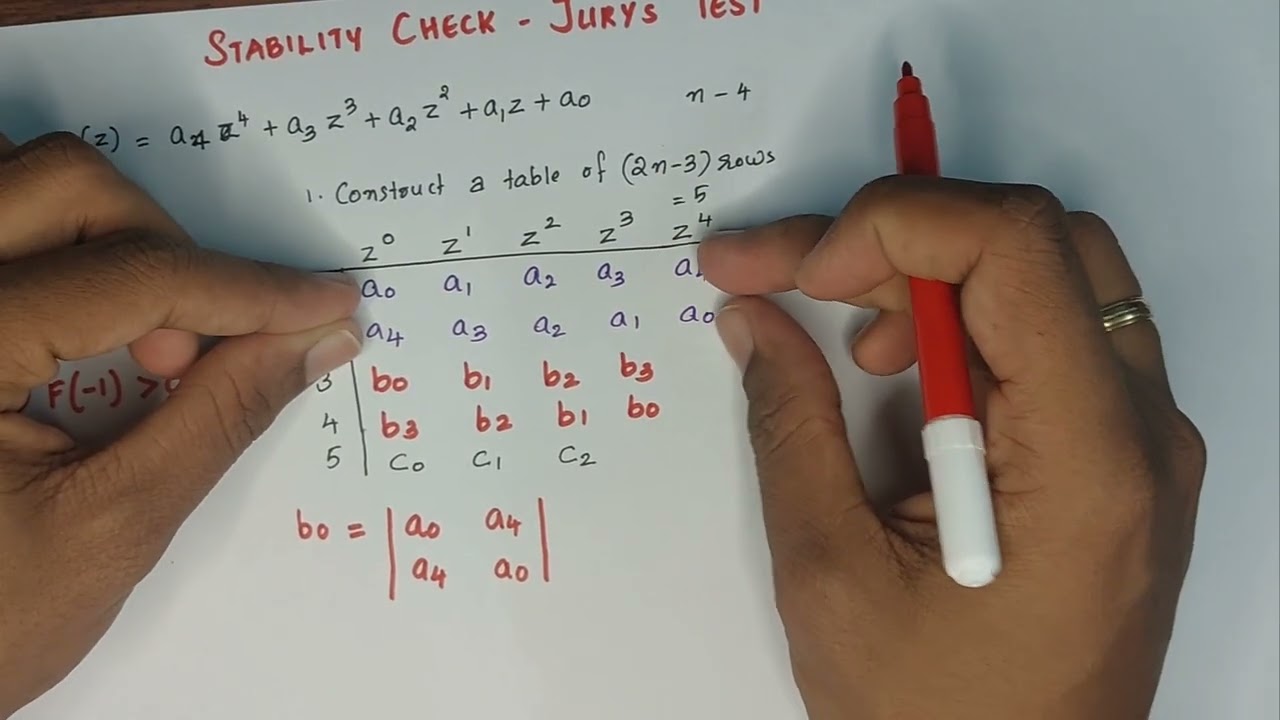 STABILITY CHECK - JURYS TEST
(z) = a4 z⁴ + a3 z³ + a2 z² + a1 z + a0 n - 4
1. Construct a table of (2n-3) rows
= 5
z⁰ z¹ z² z³ z⁴
a0 a1 a2 a3
a4 a3 a2 a1 a0
3 b0 b1 b2 b3
F(-1) >
4 b3 b2 b1 b0
5 c0 c1 c2
b0 = | a0 a4 |
| a4 a0 |